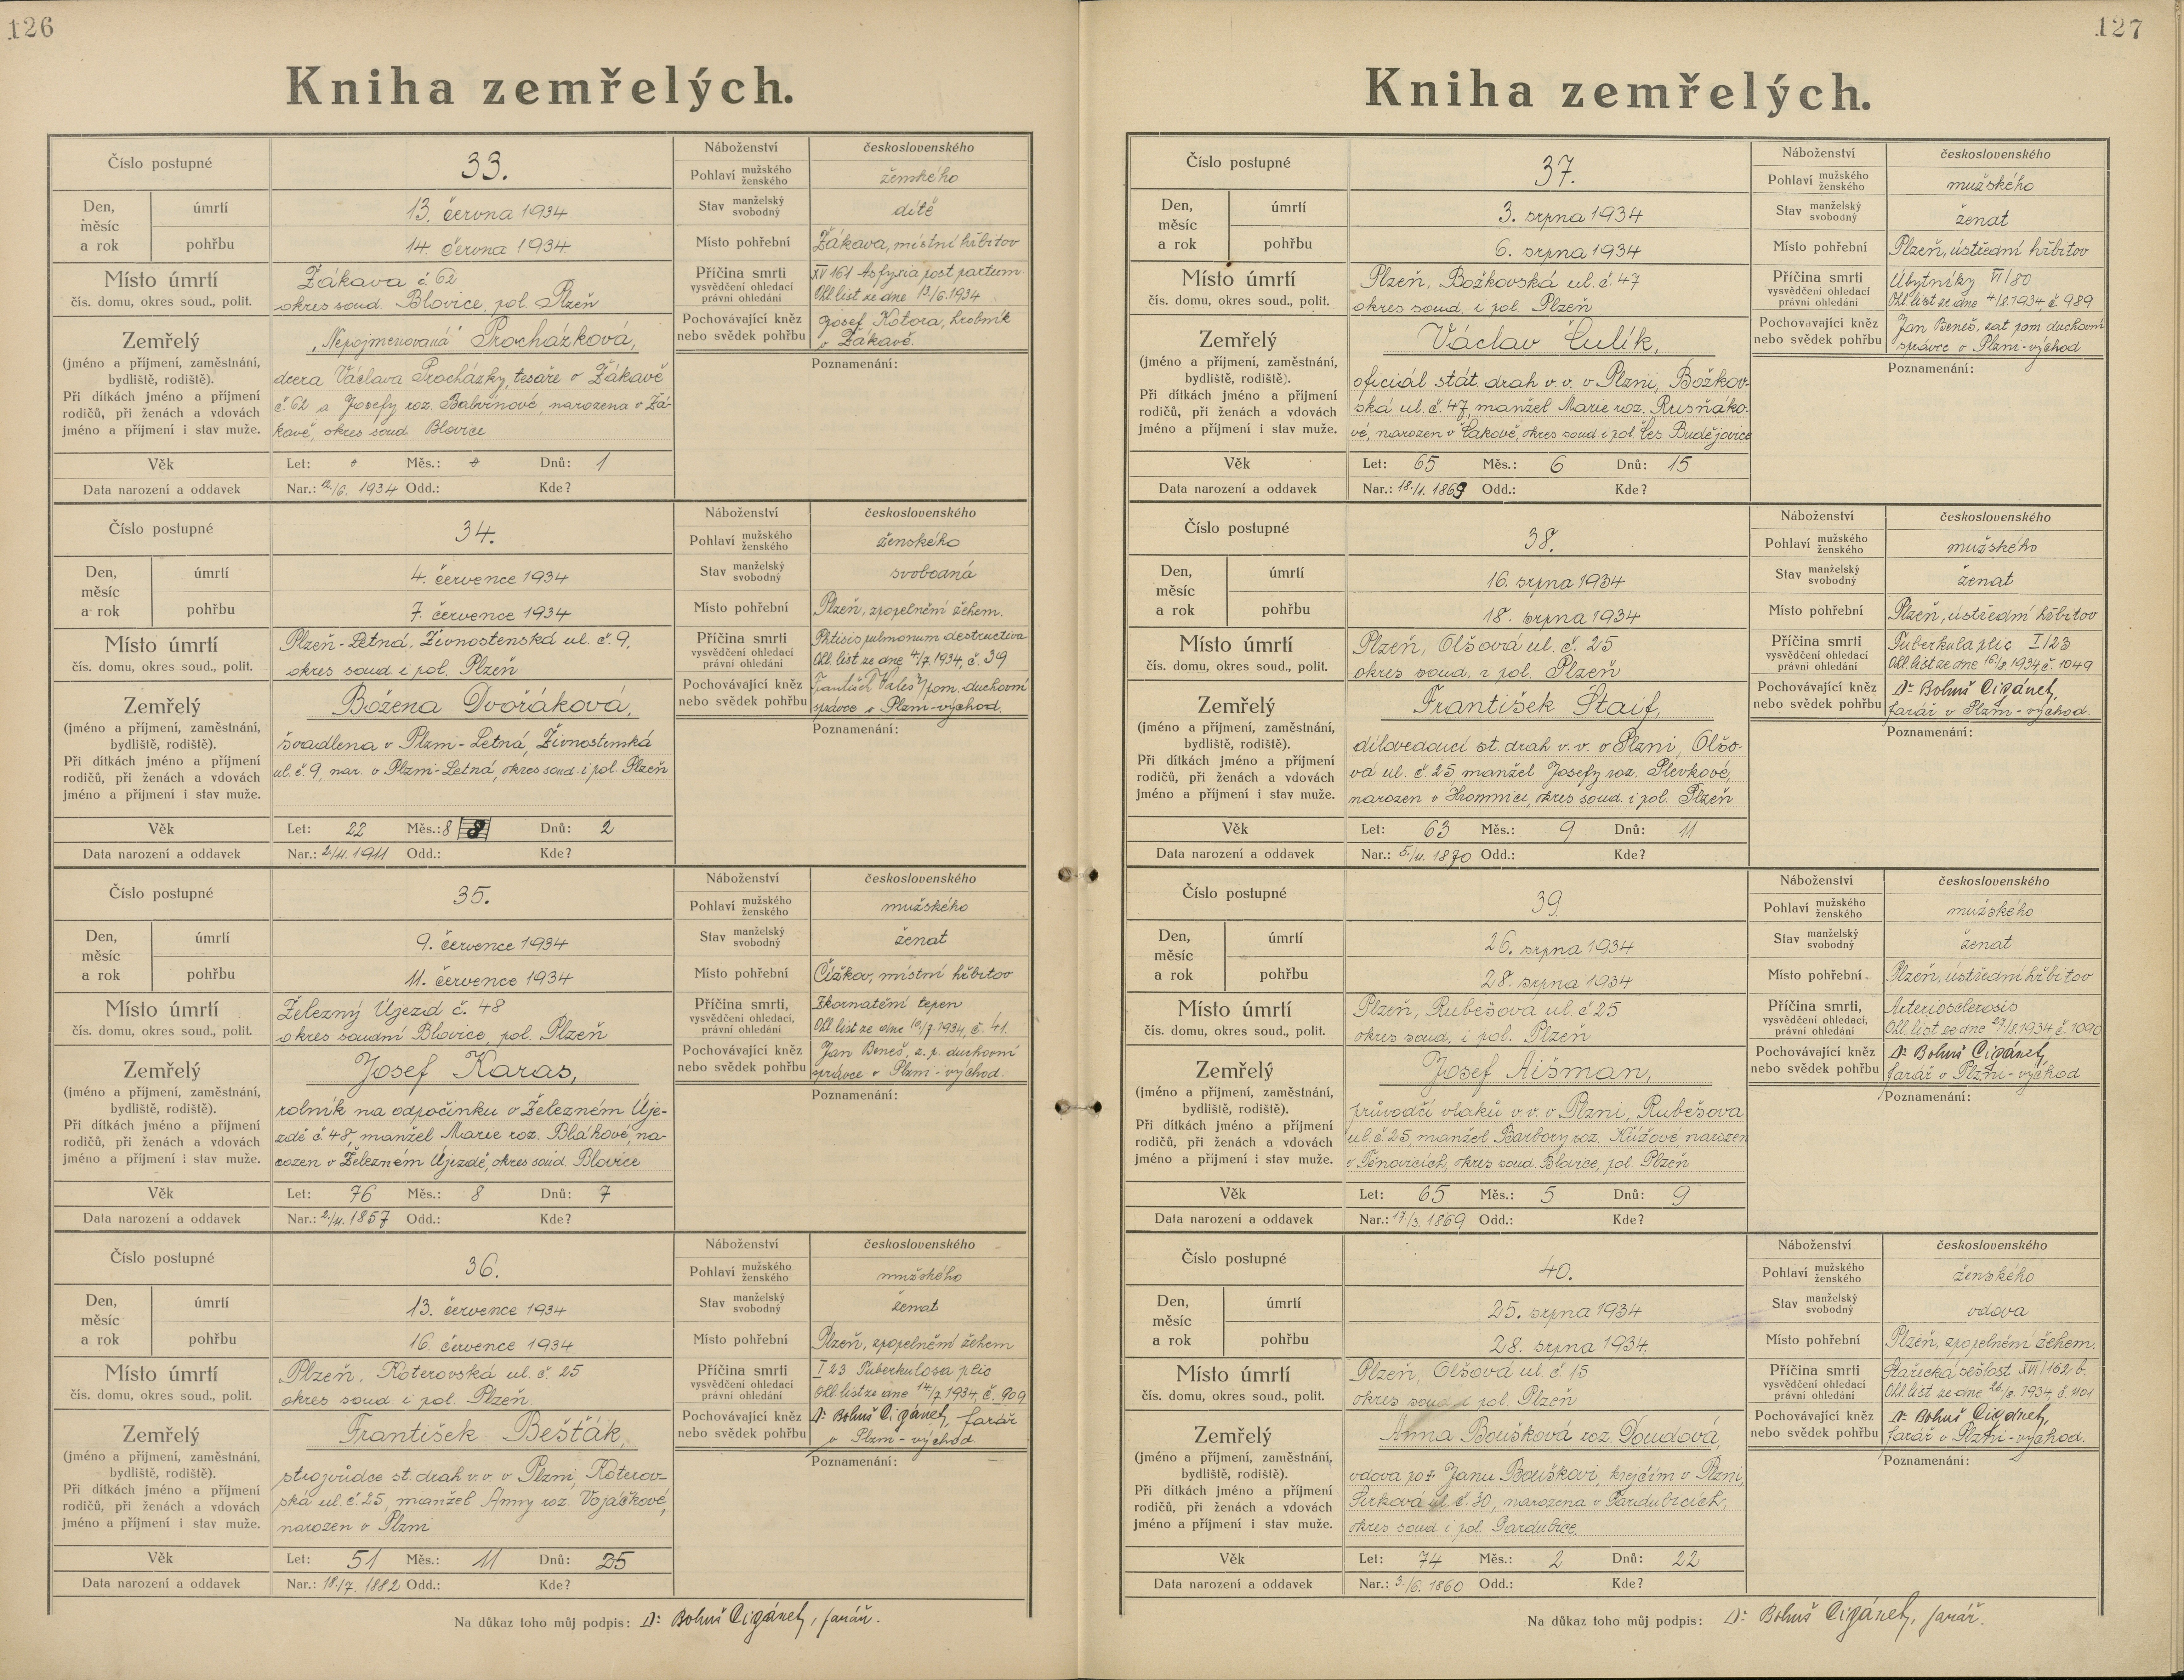 126
Kniha zemřelých.
Číslo postupné
33.
Náboženství
československého
Pohlaví mužského ženského
ženského
Den, měsíc a rok
úmrtí
13. června 1934
Stav manželský svobodný
dítě
pohřbu
14. června 1934
Místo pohřební
Žákava, místní hřbitov
Místo úmrtí
čís. domu, okres soud., polit.
Žákava č. 62
okres soud. Blovice, pol. Plzeň
Příčina smrti
vysvědčení ohledací
právní ohledání
XV 161 Asfyxia post partum
Ohl. list ze dne 13/6.1934
Pochovávající kněz
nebo svědek pohřbu
Josef Kotora, hrobník
v Žákavě.
Zemřelý
(jméno a příjmení, zaměstnání,
bydliště, rodiště).
Při dítkách jméno a příjmení
rodičů, při ženách a vdovách
jméno a příjmení i stav muže.
„Nepojmenovaná" Procházková,
dcera Václava Procházky, tesaře v Žákavě
č. 62 a Josefy roz. Babvínové, narozena v Žá-
kavě, okres soud Blovice
Poznamenání:
Věk
Let: Měs.: Dnů: 1
Data narození a oddavek
Nar.: 12./6. 1934 Odd.: Kde?
Číslo postupné
34.
Náboženství
československého
Pohlaví mužského ženského
ženského
Den, měsíc a rok
úmrtí
4. července 1934
Stav manželský svobodný
svobodná
pohřbu
7. července 1934
Místo pohřební
Plzeň, zpopelnění žehem.
Místo úmrtí
čís. domu, okres soud., polit.
Plzeň-Letná, Živnostenská ul. č. 9,
okres soud i pol. Plzeň
Příčina smrti
vysvědčení ohledací
právní ohledání
Phtisis pulmonum destructiva
Ohl. list ze dne 4/7.1934, č. 39
Pochovávající kněz
nebo svědek pohřbu
František pom. duchovní
správce v Plzni-východ.
Zemřelý
(jméno a příjmení, zaměstnání,
bydliště, rodiště).
Při dítkách jméno a příjmení
rodičů, při ženách a vdovách
jméno a příjmení i stav muže.
Božena Dvořáková,
švadlena v Plzni-Letná, Živnostenská
ul. č. 9, nar. v Plzni-Letná, okres soud. i pol. Plzeň
Poznamenání:
Věk
Let: 22 Měs.: 8 8 Dnů: 2
Data narození a oddavek
Nar.: 2./11. 1911 Odd.: Kde?
Číslo postupné
35.
Náboženství
československého
Pohlaví mužského ženského
mužského
Den, měsíc a rok
úmrtí
9. července 1934
Stav manželský svobodný
ženat
pohřbu
11. července 1934
Místo pohřební
Čížkov, místní hřbitov
Místo úmrtí
čís. domu, okres soud., polit.
Železný Újezd č. 48
okres soudní Blovice, pol. Plzeň
Příčina smrti,
vysvědčení ohledací,
právní ohledání
Zkornatění tepen
Ohl. list ze dne 10/7.1934, č. 41.
Pochovávající kněz
nebo svědek pohřbu
Jan Beneš, z. p. duchovní
správce v Plzni-východ.
Zemřelý
(jméno a příjmení, zaměstnání,
bydliště, rodiště).
Při dítkách jméno a příjmení
rodičů, při ženách a vdovách
jméno a příjmení i stav muže.
Josef Karas,
rolník na odpočinku v Železném Úje-
zdě č. 48, manžel Marie roz. Bláhové, na-
rozen v Železném Újezdě, okres soud. Blovice
Poznamenání:
Věk
Let: 76 Měs.: 8 Dnů: 7
Data narození a oddavek
Nar.: 2./11. 1857 Odd.: Kde?
Číslo postupné
36.
Náboženství
československého
Pohlaví mužského ženského
mužského
Den, měsíc a rok
úmrtí
13. července 1934
Stav manželský svobodný
ženat
pohřbu
16. července 1934
Místo pohřební
Plzeň, zpopelněním žehem
Místo úmrtí
čís. domu, okres soud., polit.
Plzeň, Koterovská ul. č. 25
okres soud. i pol. Plzeň
Příčina smrti
vysvědčení ohledací
právní ohledání
I 23 Tuberkulosa plic
Ohl. list ze dne 14/7.1934, č. 909
Pochovávající kněz
nebo svědek pohřbu
Dr. Bohuš Cigánek, farář
v Plzni-východ
Zemřelý
(jméno a příjmení, zaměstnání,
bydliště, rodiště).
Při dítkách jméno a příjmení
rodičů, při ženách a vdovách
jméno a příjmení i stav muže.
František Bešťák,
strojvůdce st. drah v.v. v Plzni, Koterov-
ská ul. č. 25, manžel Anny roz. Vojáčkové,
narozen v Plzni
Poznamenání:
Věk
Let: 51 Měs.: 11 Dnů: 25
Data narození a oddavek
Nar.: 18./7. 1882 Odd.: Kde?
Na důkaz toho můj podpis: Dr. Bohuš Cigánek, farář.
127
Kniha zemřelých.
Číslo postupné
37.
Náboženství
československého
Pohlaví mužského ženského
mužského
Den, měsíc a rok
úmrtí
3. srpna 1934
Stav manželský svobodný
ženat
pohřbu
6. srpna 1934
Místo pohřební
Plzeň, ústřední hřbitov
Místo úmrtí
čís. domu, okres soud., polit.
Plzeň, Božkovská ul. č. 47
okres soud. i pol. Plzeň
Příčina smrti
vysvědčení ohledací
právní ohledání
Úbytníky VI/80
Ohl. list ze dne 4/8.1934, č. 989
Pochovávající kněz
nebo svědek pohřbu
Jan Beneš, zat. pom. duchovní
správce v Plzni-východ
Zemřelý
(jméno a příjmení, zaměstnání,
bydliště, rodiště).
Při dítkách jméno a příjmení
rodičů, při ženách a vdovách
jméno a příjmení i stav muže.
Václav Čulík,
oficiál stát. drah v.v. v Plzni, Božkov-
ská ul. č. 47, manžel Marie roz. Rusňáko-
vé, narozen v Čakově, okres soud. i pol. Čes. Budějovice
Poznamenání:
Věk
Let: 65 Měs.: 6 Dnů: 15
Data narození a oddavek
Nar.: 18./1. 1869 Odd.: Kde?
Číslo postupné
38.
Náboženství
československého
Pohlaví mužského ženského
mužského
Den, měsíc a rok
úmrtí
16. srpna 1934
Stav manželský svobodný
ženat
pohřbu
18. srpna 1934
Místo pohřební
Plzeň, ústřední hřbitov
Místo úmrtí
čís. domu, okres soud., polit.
Plzeň, Olšová ul. č. 25
okres soud. i pol. Plzeň
Příčina smrti
vysvědčení ohledací
právní ohledání
Tuberkula plic I/23
Ohl. list ze dne 16/8.1934, č. 1049
Pochovávající kněz
nebo svědek pohřbu
Dr. Bohuš Cigánek,
farář v Plzni-východ.
Zemřelý
(jméno a příjmení, zaměstnání,
bydliště, rodiště).
Při dítkách jméno a příjmení
rodičů, při ženách a vdovách
jméno a příjmení i stav muže.
František Štaif,
dílovedoucí st. drah v.v. v Plzni, Olšo-
vá ul. č. 25 manžel Josefy roz. Plevkové,
narozen v Hromnici, okres soud. i pol. Plzeň
Poznamenání:
Věk
Let: 63 Měs.: 9 Dnů: 11
Data narození a oddavek
Nar.: 5./11. 1870 Odd.: Kde?
Číslo postupné
39.
Náboženství
československého
Pohlaví mužského ženského
mužského
Den, měsíc a rok
úmrtí
26. srpna 1934
Stav manželský svobodný
ženat
pohřbu
28. srpna 1934
Místo pohřební
Plzeň, ústřední hřbitov
Místo úmrtí
čís. domu, okres soud., polit.
Plzeň, Rubešova ul. č 25
okres soud. i pol. Plzeň
Příčina smrti,
vysvědčení ohledací,
právní ohledání
Arteriosclerosis
Ohl. list ze dne 27/8.1934 č. 1090
Pochovávající kněz
nebo svědek pohřbu
Dr. Bohuš Cigánek,
farář v Plzni-východ
Zemřelý
(jméno a příjmení, zaměstnání,
bydliště, rodiště).
Při dítkách jméno a příjmení
rodičů, při ženách a vdovách
jméno a příjmení i stav muže.
Josef Aišman,
průvodčí vlaků v.v. v Plzni, Rubešova
ul. č. 25, manžel Barbory roz. Křížové, narozen
v Těnovicích, okres soud. Blovice, pol. Plzeň
Poznamenání:
Věk
Let: 65 Měs.: 5 Dnů: 9
Data narození a oddavek
Nar.: 17./3. 1869 Odd.: Kde?
Číslo postupné
40.
Náboženství
československého
Pohlaví mužského ženského
ženského
Den, měsíc a rok
úmrtí
25. srpna 1934
Stav manželský svobodný
vdova
pohřbu
28. srpna 1934.
Místo pohřební
Plzeň, zpopelněním žehem.
Místo úmrtí
čís. domu, okres soud., polit.
Plzeň, Olšová ul. č 15
okres soud i pol. Plzeň
Příčina smrti
vysvědčení ohledací
právní ohledání
Stařecká sešlost XVI/162 b.
Ohl. list ze dne 26./8. 1934 č. 1101
Pochovávající kněz
nebo svědek pohřbu
Dr. Bohuš Cigánek,
farář v Plzni-východ.
Zemřelý
(jméno a příjmení, zaměstnání,
bydliště, rodiště).
Při dítkách jméno a příjmení
rodičů, při ženách a vdovách
jméno a příjmení i stav muže.
Anna Boušková roz. Doudová,
vdova po Janu Bouškovi, krejčím v Plzni,
ul. č. 30, narozena v Pardubicích,
okres soud i pol. Pardubice.
Poznamenání:
Věk
Let: 74 Měs.: 2 Dnů: 22
Data narození a oddavek
Nar.: 3./6. 1860 Odd.: Kde?
Na důkaz toho můj podpis: Dr. Bohuš Cigánek, farář.